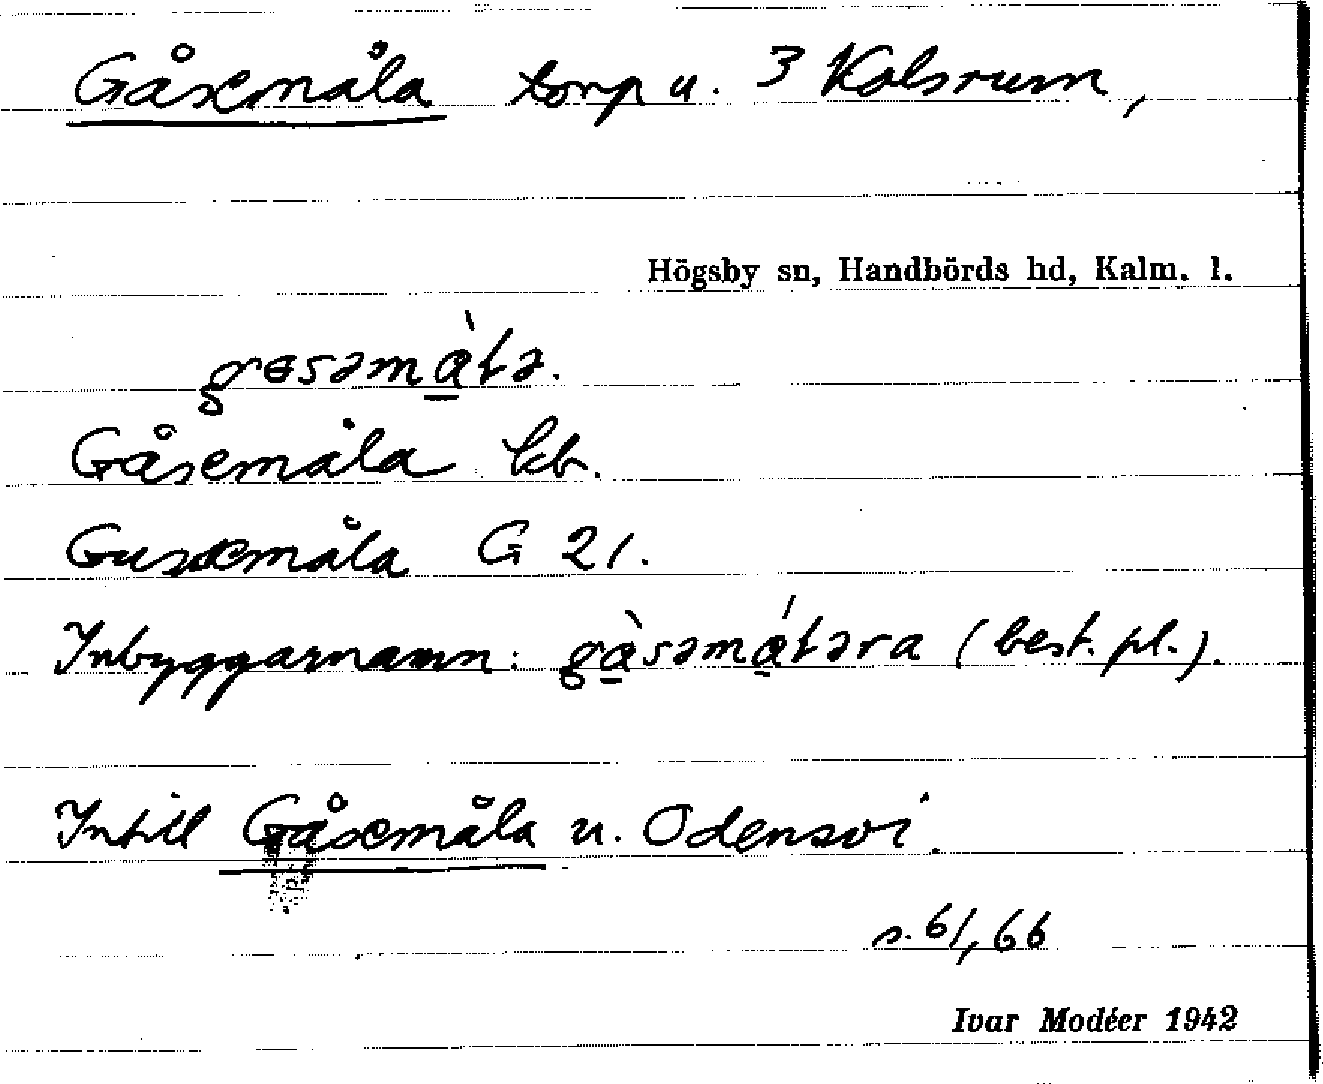 Gåsemåla torp u. 3 Kolsrum,
Högsby sn, Handbörds hd, Kalm. l.
gɵsəmàɫə.
Gåsemåla kb.
Gusemåla G 21.
Inbyggarnamn: gàsəmáɫəra (best. pl.).
Intill Gåsemåla u. Odensvi.
s. 61, 66
Ivar Modéer 1942